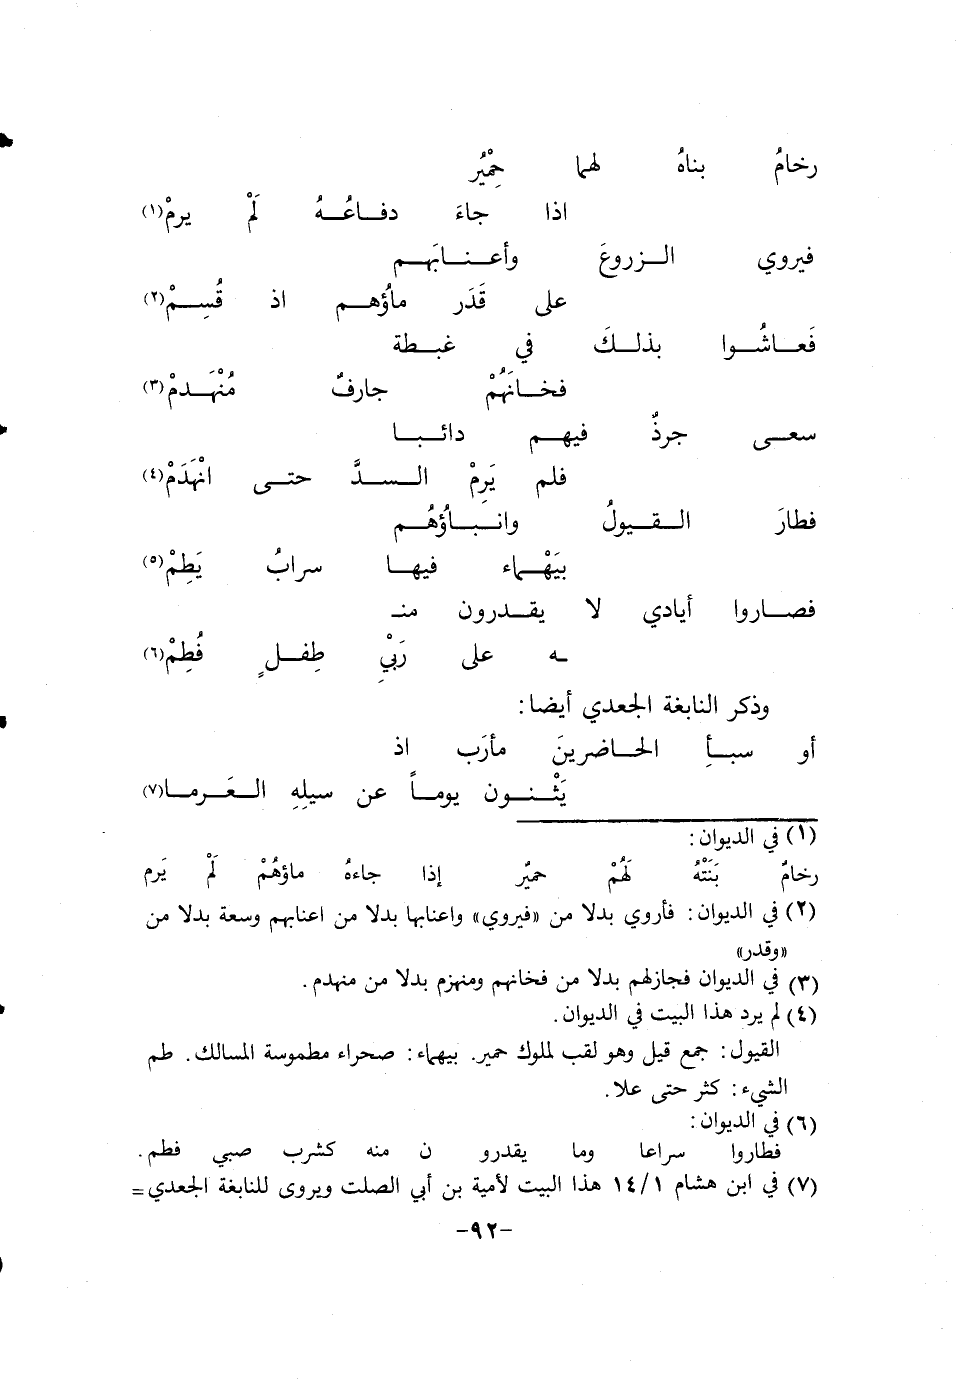 رخامُ بناهُ لهما حِمْيُر
اذا جاءَ دفـاعُـهُ لَمْ يرمْ(١)
فيروي الـزروعَ وأعـنـابَهـم
على قَدَر ماؤُهـم اذ قُسِـمْ(٢)
فَعـاشُـوا بذلـكَ في غبـطة
فخـانَهُمْ جارفٌ مُنْهَـدمْ(٣)
سعـى جرذٌ فيهـم دائـبـا
فلم يَرِمْ الـسـدَّ حتـى انْهَدَمْ(٤)
فطارَ الـقـيولُ وانـبـاؤُهُـم
بَيْهـاء فيهـا سرابُ يَطِمْ(٥)
فصـاروا أيادي لا يقـدرون منـ
ـه على رَبْيِ طِفـلٍ فُطِمْ(٦)
وذكر النابغة الجعدي أيضا:
أو سبـأِ الحـاضرينَ مأرَب اذ
يَثْـنـون يومـاً عن سيلِهِ الـعَـرمـا(٧)
(١) في الديوان:
رخامٌ بَنَتْهُ لَهُمْ حميٌر إذا جاءهُ ماؤهُمْ لَمْ يَرم
(٢) في الديوان: فأروي بدلا من «فيروي» واعنابها بدلا من اعنابهم وسعة بدلا من
«وقدر»
(٣) في الديوان فجازلهم بدلا من فخانهم ومنهزم بدلا من منهدم.
(٤) لم يرد هذا البيت في الديوان.
القيول: جمع قيل وهو لقب لملوك حمير. بيهماء: صحراء مطموسة المسالك. طم
الشيء: كثر حتى علا.
(٦) في الديوان:
فطاروا سراعا وما يقدرو ن منه كشرب صبي فطم.
(٧) في ابن هشام ١٤/١ هذا البيت لأمية بن أبي الصلت ويروى للنابغة الجعدي=
-٩٢-